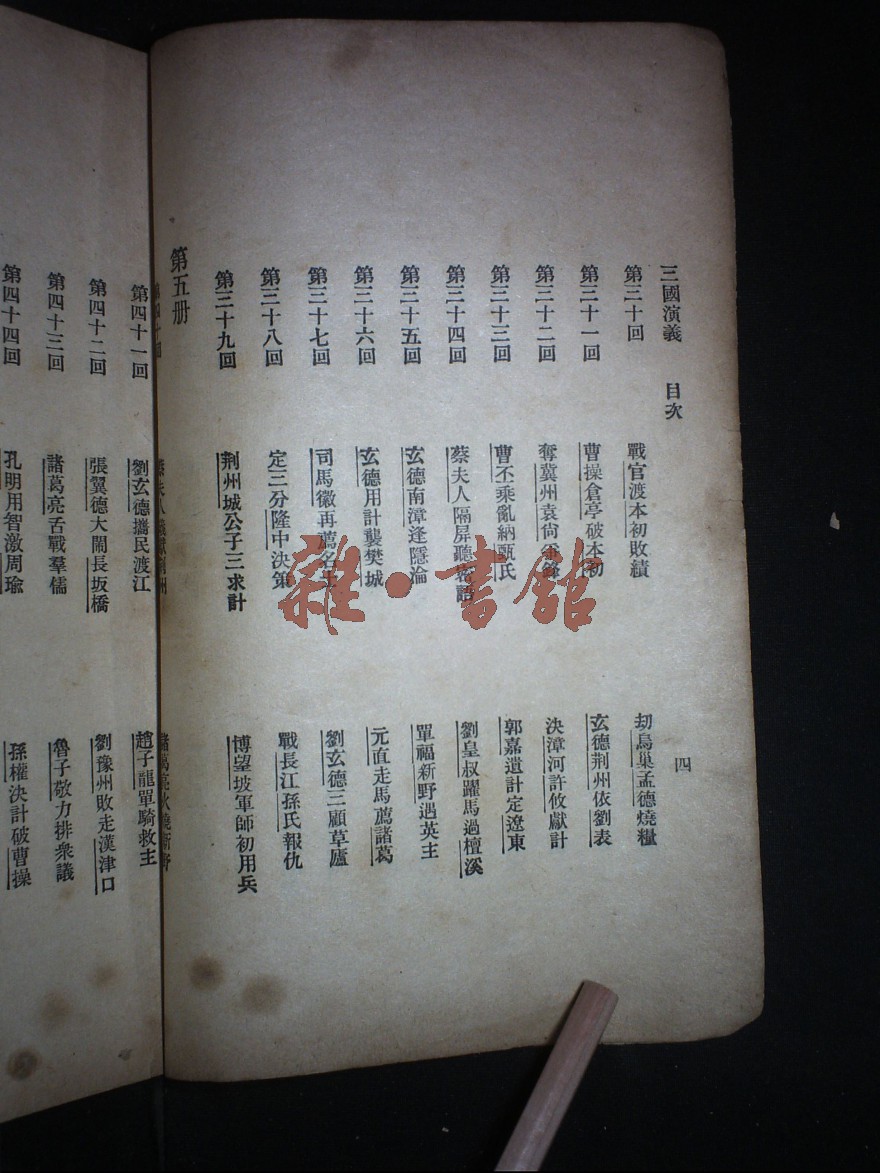 三國演義 目次 四
第三十回 戰官渡本初敗績 劫烏巢孟德燒糧
第三十一回 曹操倉亭破本初 玄德荆州依劉表
第三十二回 奪冀州袁尙爭鋒 決漳河許攸獻計
第三十三回 曹丕乘亂納甄氏 郭嘉遺計定遼東
第三十四回 蔡夫人隔屏聽密語 劉皇叔躍馬過檀溪
第三十五回 玄德南漳逢隱淪 單福新野遇英主
第三十六回 玄德用計襲樊城 元直走馬薦諸葛
第三十七回 司馬徽再薦名士 劉玄德三顧草廬
第三十八回 定三分隆中決策 戰長江孫氏報仇
第三十九回 荆州城公子三求計 博望坡軍師初用兵
第五册
第四十回 蔡夫人議獻荆州 諸葛亮火燒新野
第四十一回 劉玄德攜民渡江 趙子龍單騎救主
第四十二回 張翼德大鬧長坂橋 劉豫州敗走漢津口
第四十三回 諸葛亮舌戰羣儒 魯子敬力排衆議
第四十四回 孔明用智激周瑜 孫權決計破曹操
雜·書館